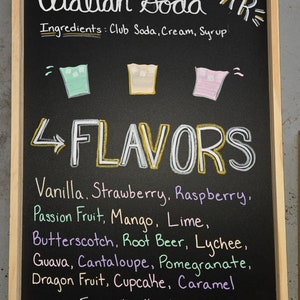 Italian Soda
Ingredients: Club Soda, Cream, Syrup
FLAVORS
Vanilla, Strawberry, Raspberry,
Passion Fruit, Mango, Lime,
Butterscotch, Root Beer, Lychee,
Guava, Cantaloupe, Pomegranate,
Dragon Fruit, Cupcake, Caramel